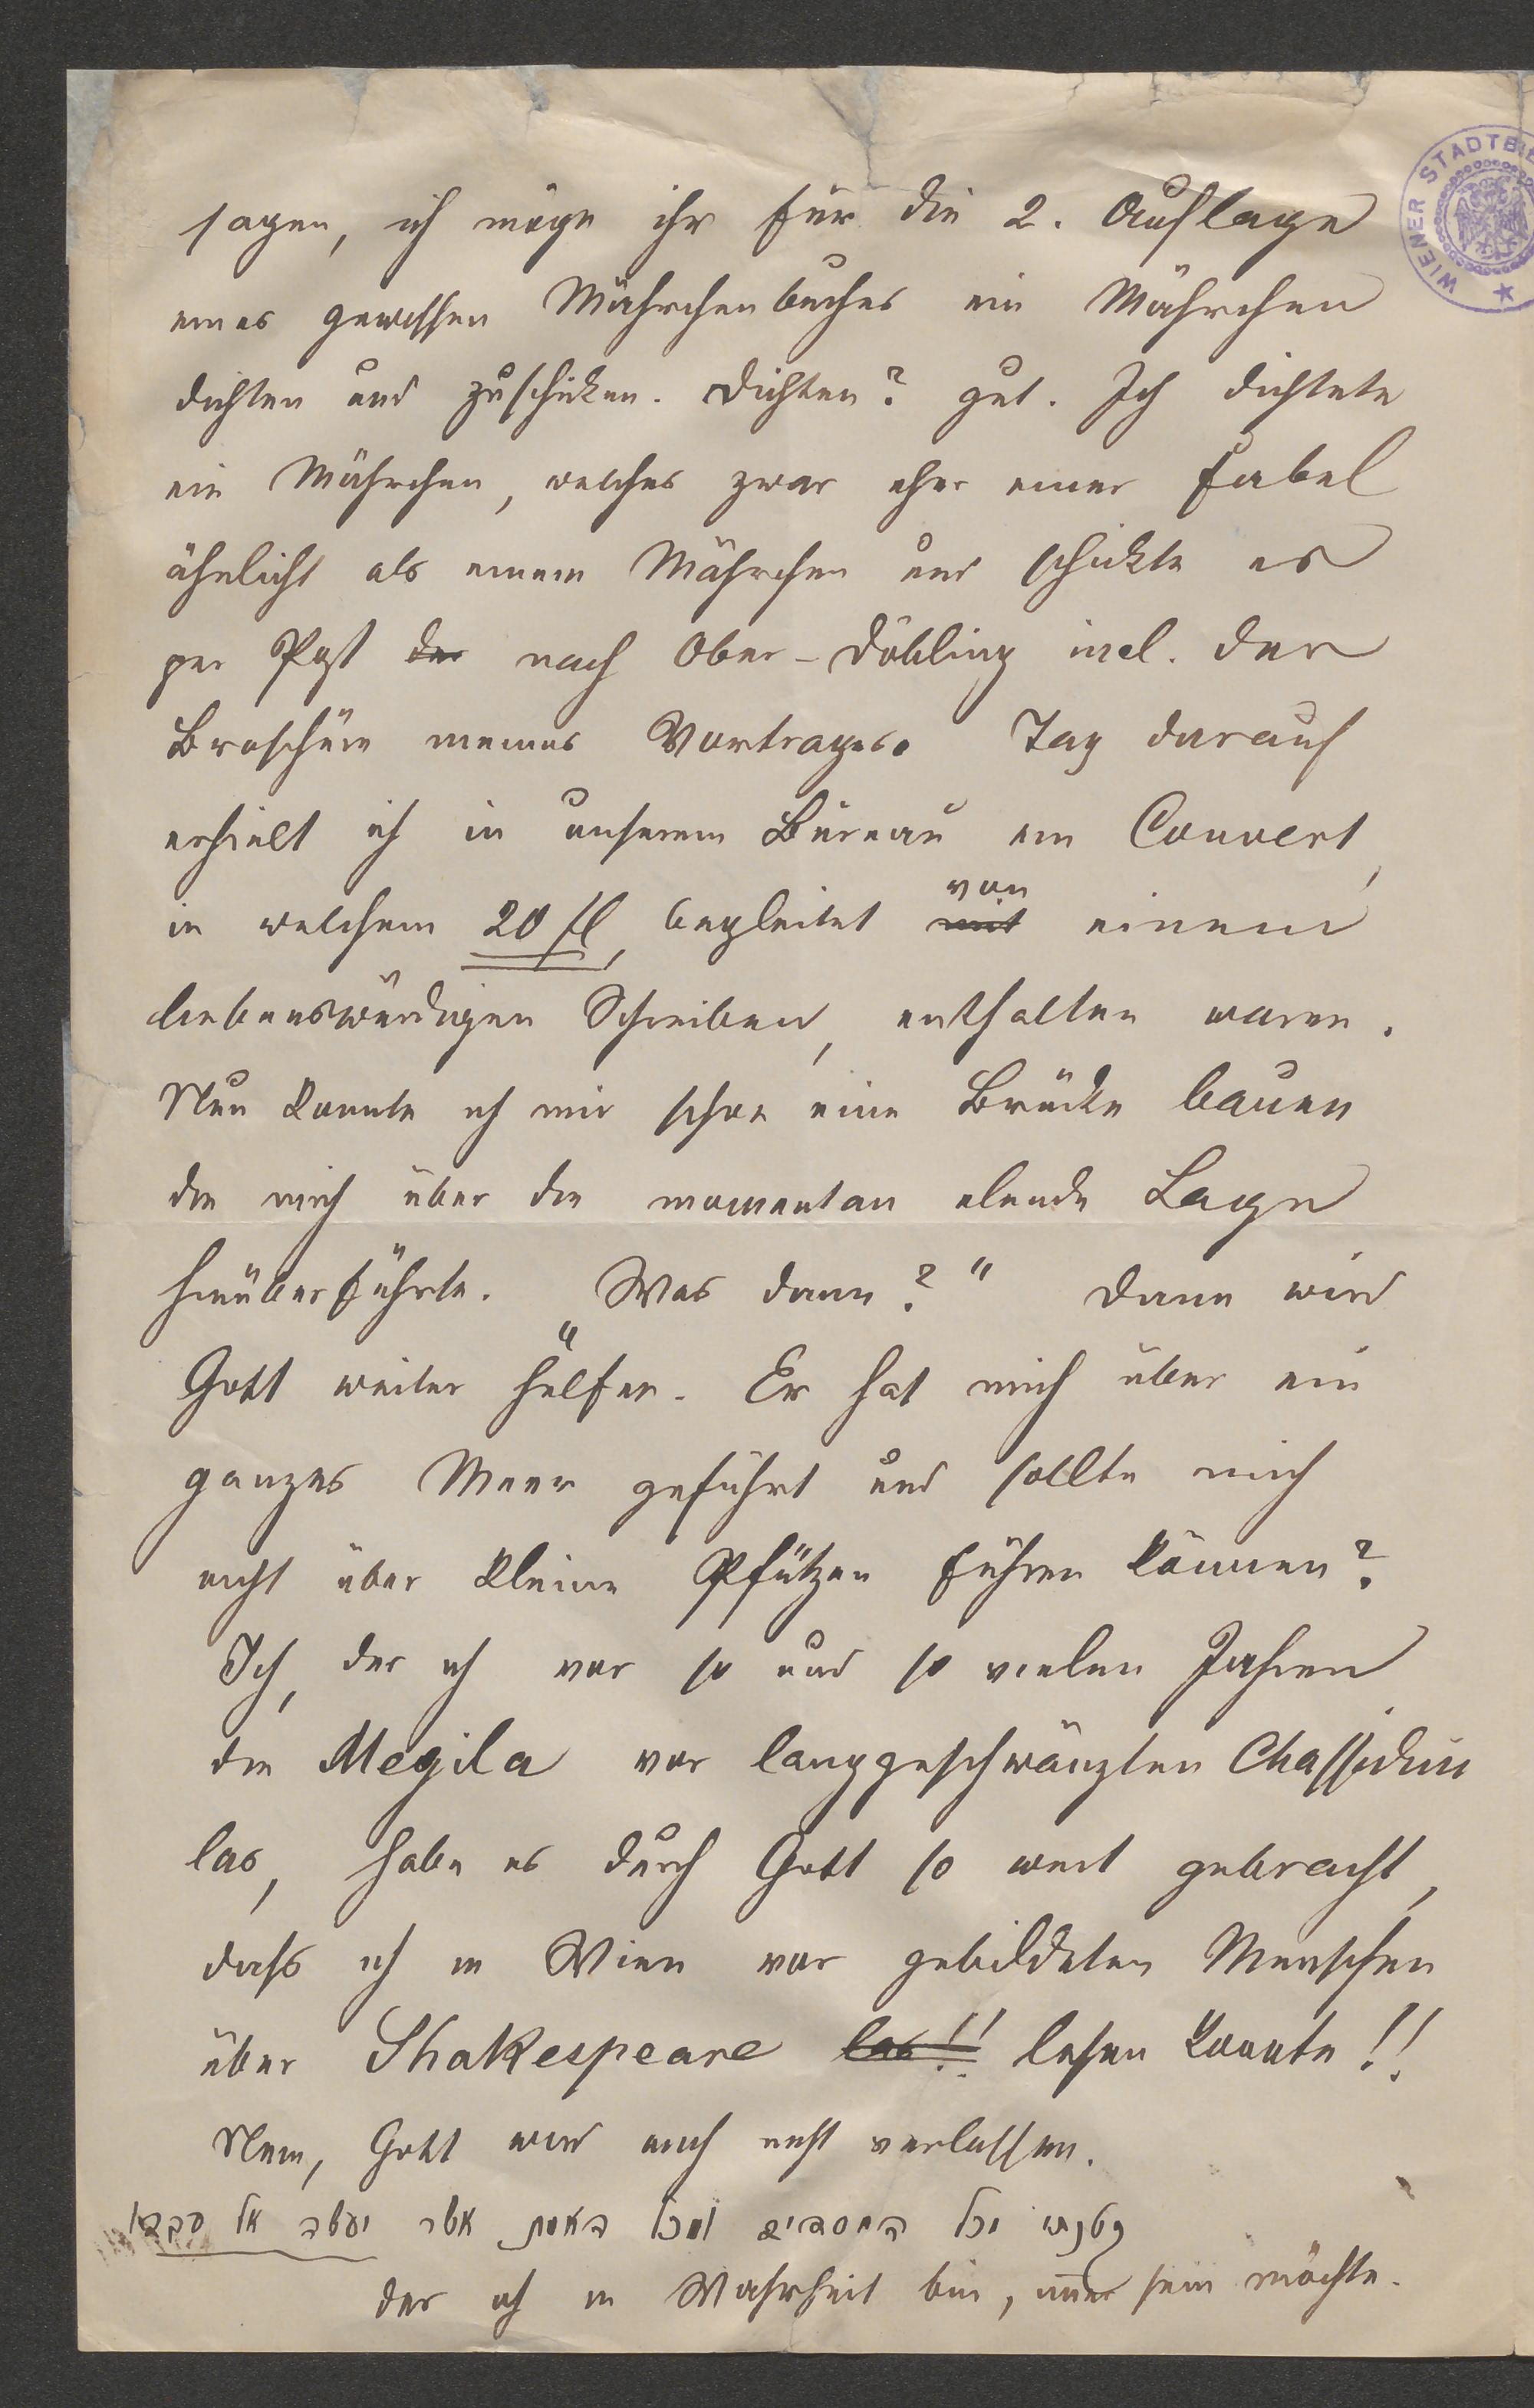 sagen, ich möge ihr für die 2. Auflage
eines gewissen Mährchenbuches ein Mährchen
dichten und zuschicken. Dichten? gut. Ich dichtete
ein Mährchen, welches zwar eher einer Fabel
ähnlicht als einem Mährchen und schickte es
per Post der nach Ober-Döbling incl. der
Broschüre meines Vortrages. Tag darauf
erhielt ich in unserem Büreau ein Couvert,
von
in welchem 20 fl, begleitet mit einem
liebenswürdigen Schreiben, enthalten waren.
Nun konnte ich mir schon eine Brücke bauen
die mich über die momentan elende Lage
hinüberführte. „Was dann?“ Dann wird
Gott weiter helfen. Er hat mich über ein
ganzes Meer geführt und sollte mich
nicht über kleine Pfützen führen können?
Ich, der ich vor so und so vielen Jahren
die Megila vor langgeschwänzten Chassidim
las, habe es durch Gott so weit gebracht,
dass ich in Wien vor gebildeten Menschen
über Shakespeare las!! lesen konnte!!
Nein, Gott wird mich nicht verlassen.
החסדים ומכל האמת אשר עשה
der ich in Wahrheit bin, immer sein möchte.
WIENER STADTBI